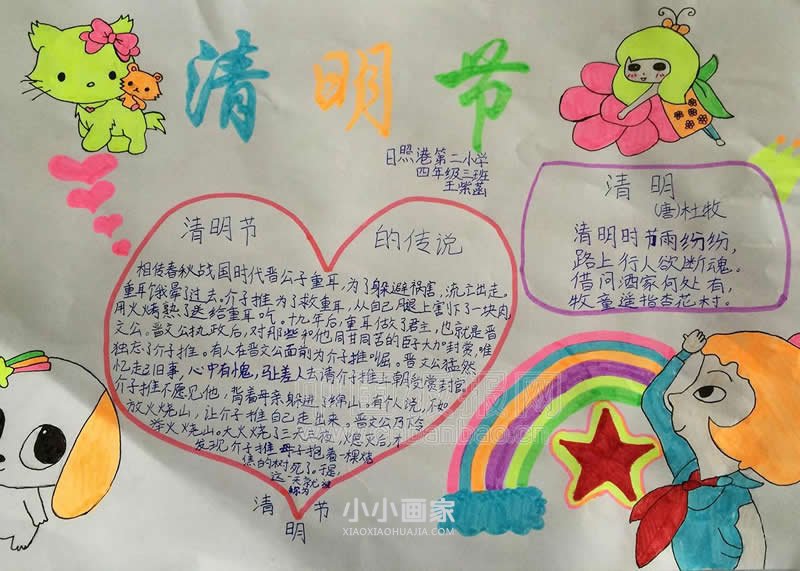 清明节
日照港第二小学
四年级三班
王紫菡
清明节 的传说
相传春秋战国时代晋公子重耳,为了躲避祸害,流亡出走。
重耳饿晕了过去。介子推为了救重耳,从自己腿上割下了一块肉
用火烤熟了送给重耳吃。十九年后,重耳做了君主,也就是晋
文公。晋文公执政后,对那些和他同甘同苦的臣子大加封赏,唯
独忘了介子推。有人在晋文公面前为介子推叫屈。晋文公猛然
忆起旧事,心中有愧,马上差人去请介子推上朝受赏封官
介子推不愿见他,背着母亲躲进了绵山。有个人说,不如
放火烧山,让介子推自己走出来。晋文公乃下令
火烧山。大火烧了三天三夜,火熄灭后,才
发现介子推母子抱着一棵烧
焦的树死了。
这一天就
清明节
清明
(唐)杜牧
清明时节雨纷纷,
路上行人欲断魂。
借问酒家何处有,
牧童遥指杏花村。
小小画家
XIAOXIAOHUAJIA.COM